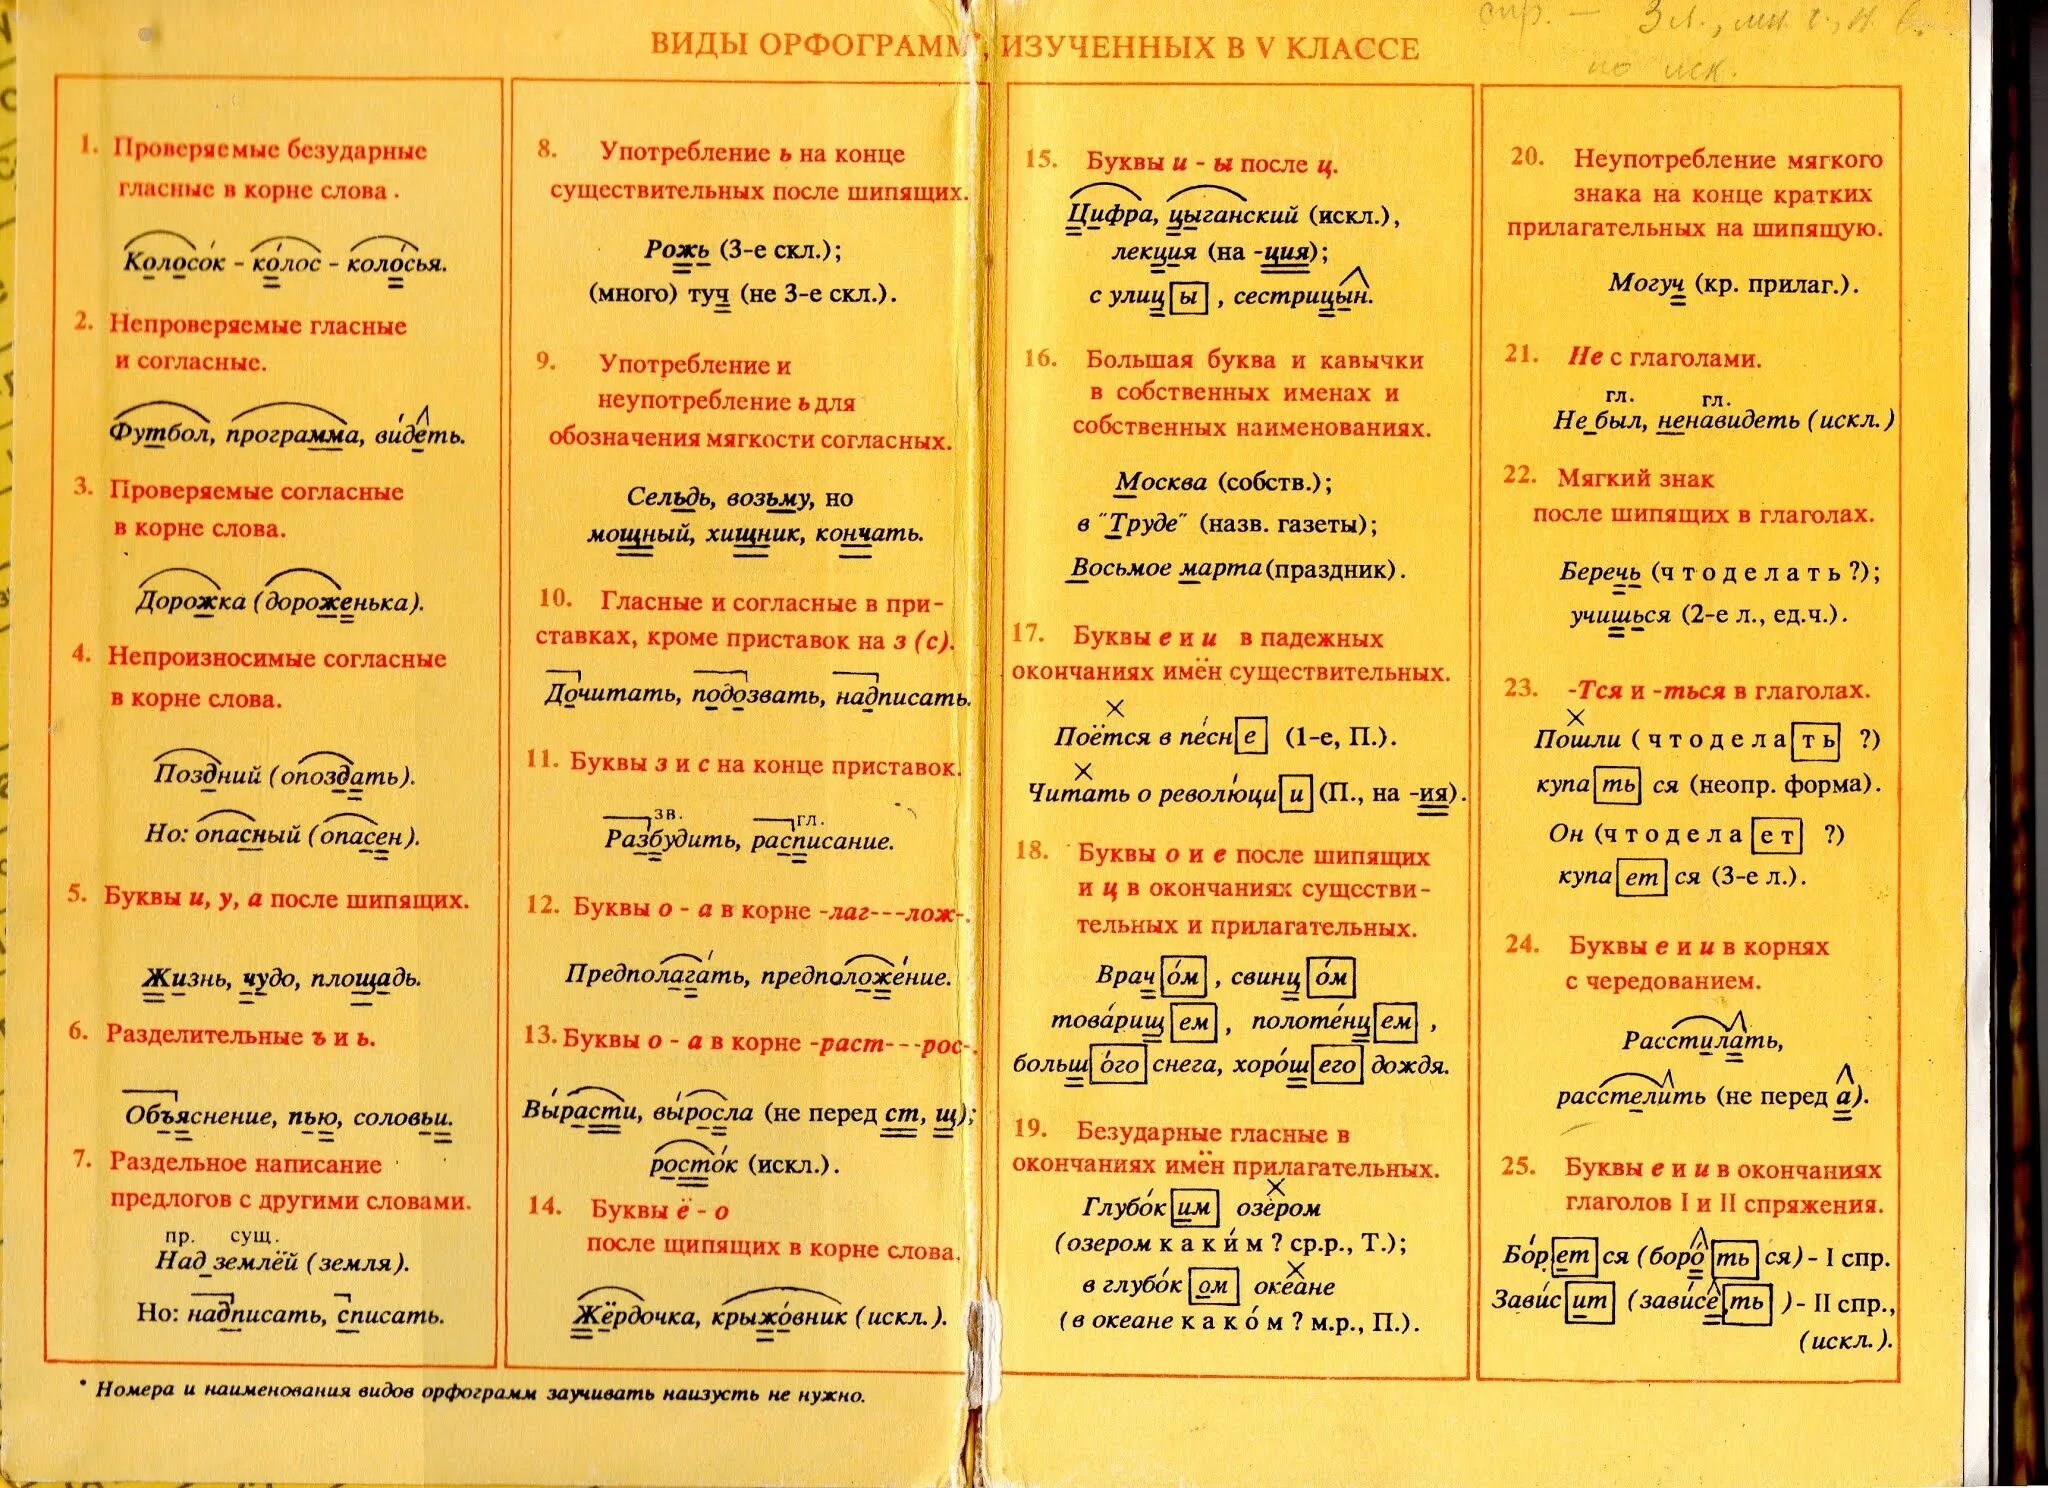 ВИДЫ ОРФОГРАММ*, ИЗУЧЕННЫХ В V КЛАССЕ
1. Проверяемые безударные
гласные в корне слова.
Колосо́к - ко́лос - коло́сья.
2. Непроверяемые гласные
и согласные.
Футбол, программа, ви́деть.
3. Проверяемые согласные
в корне слова.
Дорожка (дороженька).
4. Непроизносимые согласные
в корне слова.
Поздний (опоздать).
Но: опасный (опасен).
5. Буквы и, у, а после шипящих.
Жизнь, чудо, площадь.
6. Разделительные ъ и ь.
Объяснение, пью, соловьи.
7. Раздельное написание
предлогов с другими словами.
пр. сущ.
Над землёй (земля).
Но: надписать, списать.
8. Употребление ь на конце
существительных после шипящих.
Рожь (3-е скл.);
(много) туч (не 3-е скл.).
9. Употребление и
неупотребление ь для
обозначения мягкости согласных.
Сельдь, возьму, но
мощный, хищник, кончать.
10. Гласные и согласные в при-
ставках, кроме приставок на з (с).
Дочитать, подозвать, надписать.
11. Буквы з и с на конце приставок.
зв. гл.
Разбудить, расписание.
12. Буквы о - а в корне -лаг---лож-.
Предполага́ть, предположе́ние.
13. Буквы о - а в корне -раст---рос-.
Вы́расти, вы́росла (не перед ст, щ);
росто́к (искл.).
14. Буквы ё - о
после щипящих в корне слова.
Жёрдочка, крыжо́вник (искл.).
15. Буквы и - ы после ц.
Цифра, цыганский (искл.),
лекция (на -ция);
с улицы, сестрицын.
16. Большая буква и кавычки
в собственных именах и
собственных наименованиях.
Москва (собств.);
в "Труде" (назв. газеты);
Восьмое марта (праздник).
17. Буквы е и и в падежных
окончаниях имён существительных.
Поётся в пе́сне (1-е, П.).
Читать о револю́ции (П., на -ия).
18. Буквы о и е после шипящих
и ц в окончаниях существи-
тельных и прилагательных.
Врачо́м, свинцо́м
това́рищем, полоте́нцем,
большо́го снега, хоро́шего дождя.
19. Безударные гласные в
окончаниях имён прилагательных.
Глубо́ким озером
(озером каки́м? ср.р., Т.);
в глубо́ком океане
(в океане како́м? м.р., П.).
20. Неупотребление мягкого
знака на конце кратких
прилагательных на шипящую.
Могуч (кр. прилаг.).
21. Не с глаголами.
гл. гл.
Не был, ненавидеть (искл.)
22. Мягкий знак
после шипящих в глаголах.
Беречь (что делать?);
учишься (2-е л., ед.ч.).
23. -Тся и -ться в глаголах.
Пошли (что делать?)
купаться (неопр. форма).
Он (что делает?)
купается (3-е л.).
24. Буквы е и и в корнях
с чередованием.
Расстилать,
расстелить (не перед а).
25. Буквы е и и в окончаниях
глаголов I и II спряжения.
Бо́рется (боро́ться) - I спр.
Зави́сит (зави́сеть) - II спр.,
(искл.).
* Номера и наименования видов орфограмм заучивать наизусть не нужно.